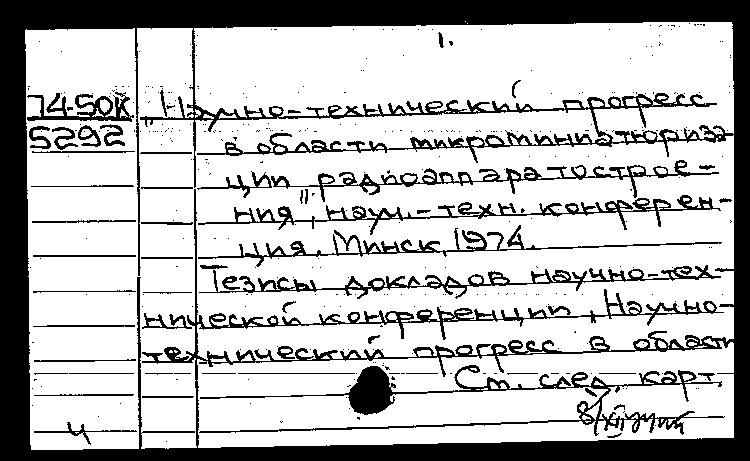 1.
74-50К
5292
„Научно-технический прогресс
в области микроминиатюриза
ции радиоаппаратострое-
ния", науч.-техн. конферен-
ция. Минск, 1974.
Тезисы докладов научно-тех-
нической конференции „Научно-
технический прогресс в области
См. след. карт.
8/XII
ч